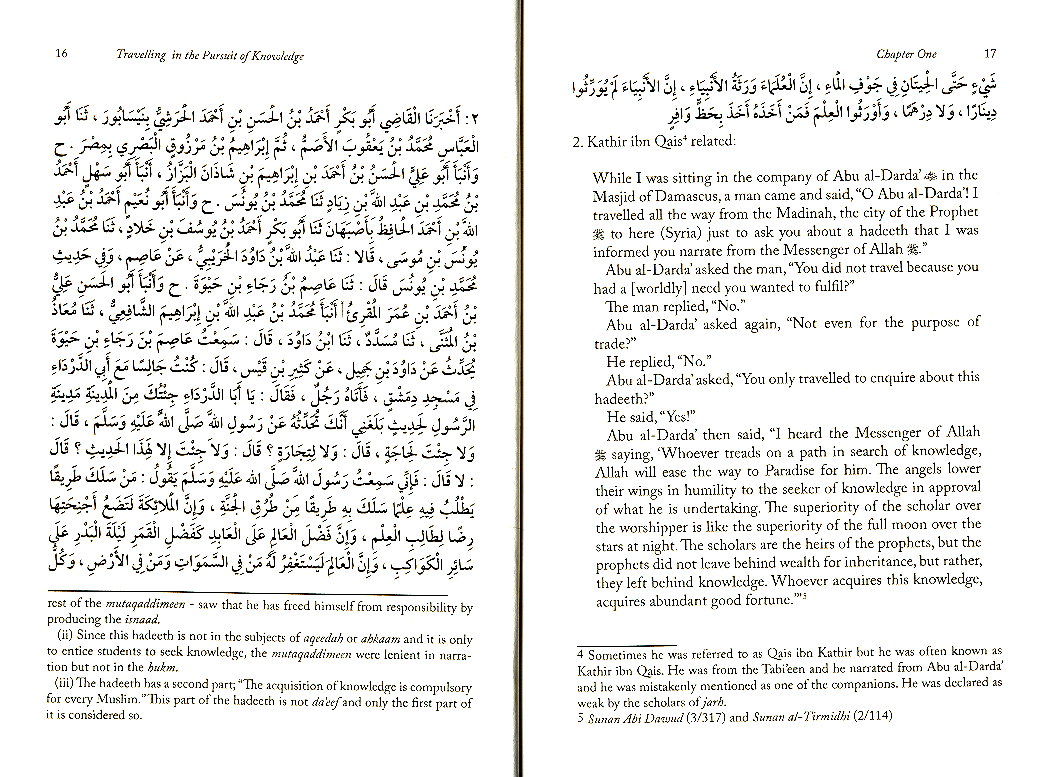 16 Travelling in the Pursuit of Knowledge
٢: أَخْبَرَنَا القَاضِي أَبُو بَكْرٍ أَحْمَدُ بْنُ الْحَسَنِ بْنِ أَحْمَدَ الْحَرَشِيُّ بِنَيْسَابُورَ ، ثَنَا أَبُو
العَبَّاسِ مُحَمَّدُ بْنُ يَعْقُوبَ الأَصَمُّ ، ثَمَّ إِبْرَاهِيمُ بْنُ مَرْزُوقٍ الْبَصْرِي بِمِصْرَ . ح
وَأَنْبَأَ أَبُو عَلِيٍّ الْحَسَنُ بْنُ أَحْمَدَ بْنِ إِبْرَاهِيمَ بْنِ شَاذَانَ الْبَزَّازُ ، أَنْبَأَ أَبُو سَهْلٍ أَحْمَدُ
بْنُ مُحَمَّدِ بْنِ عَبْدِ اللهِ بْنِ زِيَادٍ ثَنَا مُحَمَّدُ بْنُ يُونُسَ . ح وَأَنْبَأَ أَبُو نُعَيْمٍ أَحْمَدُ بْنُ عَبْدِ
اللهِ بْنِ أَحْمَدَ الْحَافِظُ بِأَصْبَهَانَ ثَنَا أَبُو بَكْرٍ أَحْمَدُ بْنُ يُوسُفَ بْنِ خَلَّادٍ ، ثَنَا مُحَمَّدُ بْنُ
يُونُسَ بْنِ مُوسَى ، قَالا : ثَنَا عَبْدُ اللهِ بْنُ دَاوُدَ الْخُرَيْبِيُّ ، عَنْ عَاصِمٍ ، وَفِي حَدِيثِ
مُحَمَّدِ بْنِ يُونُسَ قَالَ : ثَنَا عَاصِمُ بْنُ رَجَاءِ بْنِ حَيْوَةَ . ح وَأَنْبَأَ أَبُو الْحَسَنِ عَلِيُّ
بْنُ أَحْمَدَ بْنِ عُمَرَ الْمُقْرِئُ أَنْبَأَ مُحَمَّدُ بْنُ عَبْدِ اللهِ بْنِ إِبْرَاهِيمَ الشَّافِعِيُّ ، ثَنَا مُعَاذُ
بْنُ الْمُثَنَّى ، ثَنَا مُسَدَّدٌ ، ثَنَا ابْنُ دَاوُدَ ، قَالَ : سَمِعْتُ عَاصِمَ بْنَ رَجَاءِ بْنِ حَيْوَةَ
يُحَدِّثُ عَنْ دَاوُدَ بْنِ جَمِيلٍ ، عَنْ كَثِيرِ بْنِ قَيْسٍ ، قَالَ : كُنْتُ جَالِسًا مَعَ أَبِي الدَّرْدَاءِ
فِي مَسْجِدِ دِمَشْقٍ ، فَأَتَاهُ رَجُلٌ ، فَقَالَ : يَا أَبَا الدَّرْدَاءِ جِئْتُكَ مِنَ الْمَدِينَةِ مَدِينَةِ
الرَّسُولِ لِحَدِيثٍ بَلَغَنِي أَنَّكَ تُحَدِّثُهُ عَنْ رَسُولِ اللهِ صَلَّى اللهُ عَلَيْهِ وَسَلَّمَ ، قَالَ :
وَلا جِئْتَ لِحَاجَةٍ ، قَالَ : وَلا لِتِجَارَةٍ ؟ قَالَ : وَلا جِئْتَ إِلا لِهَذَا الْحَدِيثِ ؟ قَالَ
: لا قَالَ : فَإِنِّي سَمِعْتُ رَسُولَ اللهِ صَلَّى اللهُ عَلَيْهِ وَسَلَّمَ يَقُولُ : مَنْ سَلَكَ طَرِيقًا
يَطْلُبُ فِيهِ عِلْمًا سَلَكَ بِهِ طَرِيقًا مِنْ طُرُقِ الْجَنَّةِ ، وَإِنَّ الْمَلائِكَةَ لَتَضَعُ أَجْنِحَتَهَا
رِضًا لِطَالِبِ الْعِلْمِ ، وَإِنَّ فَضْلَ الْعَالِمِ عَلَى الْعَابِدِ كَفَضْلِ الْقَمَرِ لَيْلَةَ الْبَدْرِ عَلَى
سَائِرِ الْكَوَاكِبِ ، وَإِنَّ الْعَالِمَ لَيَسْتَغْفِرُ لَهُ مَنْ فِي السَّمَوَاتِ وَمَنْ فِي الأَرْضِ ، وَكُلُّ
rest of the mutaqaddimeen - saw that he has freed himself from responsibility by
producing the isnaad.
(ii) Since this hadeeth is not in the subjects of aqeedah or ahkaam and it is only
to entice students to seek knowledge, the mutaqaddimeen were lenient in narra-
tion but not in the hukm.
(iii) The hadeeth has a second part; "The acquisition of knowledge is compulsory
for every Muslim." This part of the hadeeth is not da'eef and only the first part of
it is considered so.
Chapter One 17
شَيْءٍ حَتَّى الْحِيتَانِ فِي جَوْفِ الْمَاءِ ، إِنَّ الْعُلَمَاءَ وَرَثَةُ الأَنْبِيَاءِ ، إِنَّ الأَنْبِيَاءَ لَمْ يُوَرِّثُوا
دِينَارًا ، وَلا دِرْهَمًا ، وَأَوْرَثُوا الْعِلْمَ فَمَنْ أَخَذَهُ أَخَذَ بِحَظٍّ وَافِرٍ
2. Kathir ibn Qais4 related:
While I was sitting in the company of Abu al-Darda' in the
Masjid of Damascus, a man came and said, "O Abu al-Darda'! I
travelled all the way from the Madinah, the city of the Prophet
ﷺ to here (Syria) just to ask you about a hadeeth that I was
informed you narrate from the Messenger of Allah ﷺ."
Abu al-Darda' asked the man, "You did not travel because you
had a [worldly] need you wanted to fulfil?"
The man replied, "No."
Abu al-Darda' asked again, "Not even for the purpose of
trade?"
He replied, "No."
Abu al-Darda' asked, "You only travelled to enquire about this
hadeeth?"
He said, "Yes!"
Abu al-Darda' then said, "I heard the Messenger of Allah
ﷺ saying, 'Whoever treads on a path in search of knowledge,
Allah will ease the way to Paradise for him. The angels lower
their wings in humility to the seeker of knowledge in approval
of what he is undertaking. The superiority of the scholar over
the worshipper is like the superiority of the full moon over the
stars at night. The scholars are the heirs of the prophets, but the
prophets did not leave behind wealth for inheritance, but rather,
they left behind knowledge. Whoever acquires this knowledge,
acquires abundant good fortune.'"5
4 Sometimes he was referred to as Qais ibn Kathir but he was often known as
Kathir ibn Qais. He was from the Tabi'een and he narrated from Abu al-Darda'
and he was mistakenly mentioned as one of the companions. He was declared as
weak by the scholars of jarh.
5 Sunan Abi Dawud (3/317) and Sunan al-Tirmidhi (2/114)